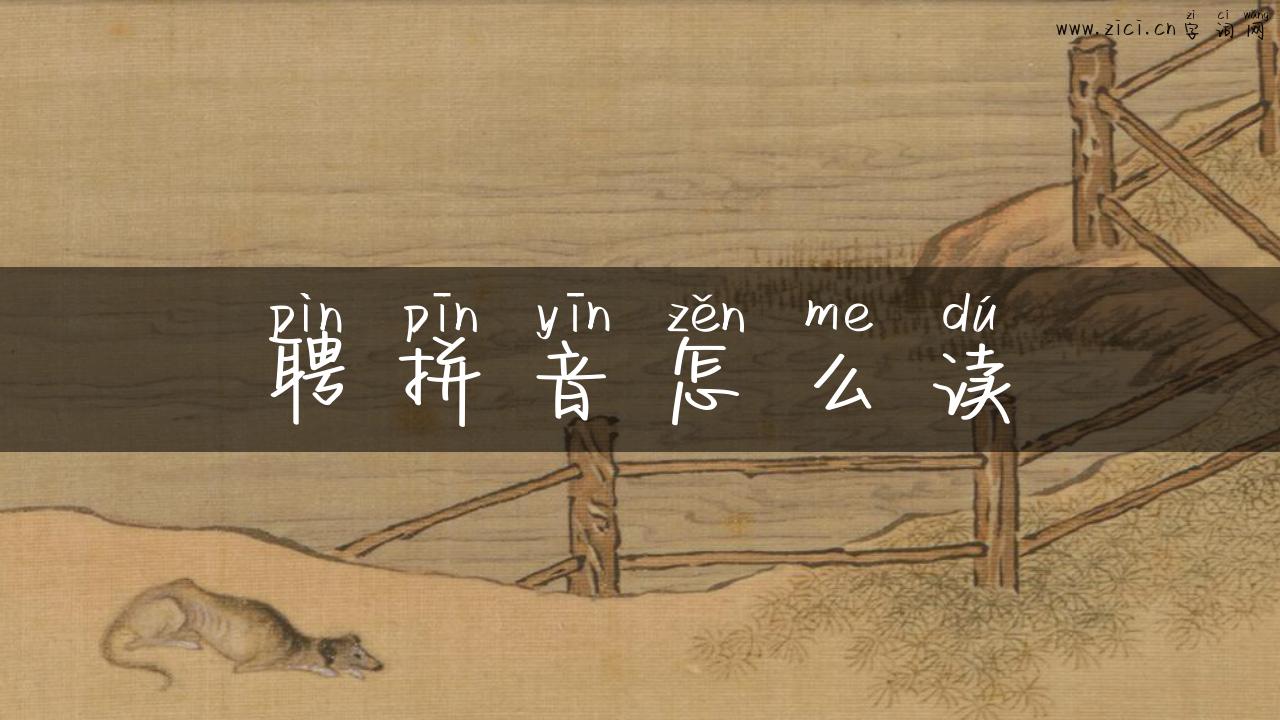 zì cí wǎng
www.zici.cn 字词网
pìn pīn yīn zěn me dú
聘拼音怎么读